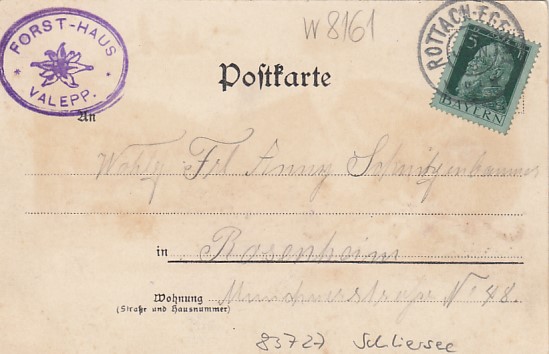 W 8161
FORST-HAUS
VALEPP.
ROTTACH-EG
5
BAYERN
Postkarte
An
Wohlg Frl Anny Schnitzenbaumer
in Rosenheim
Wohnung Münchnerstraße No 48.
(Straße und Hausnummer)
83727 Schliersee